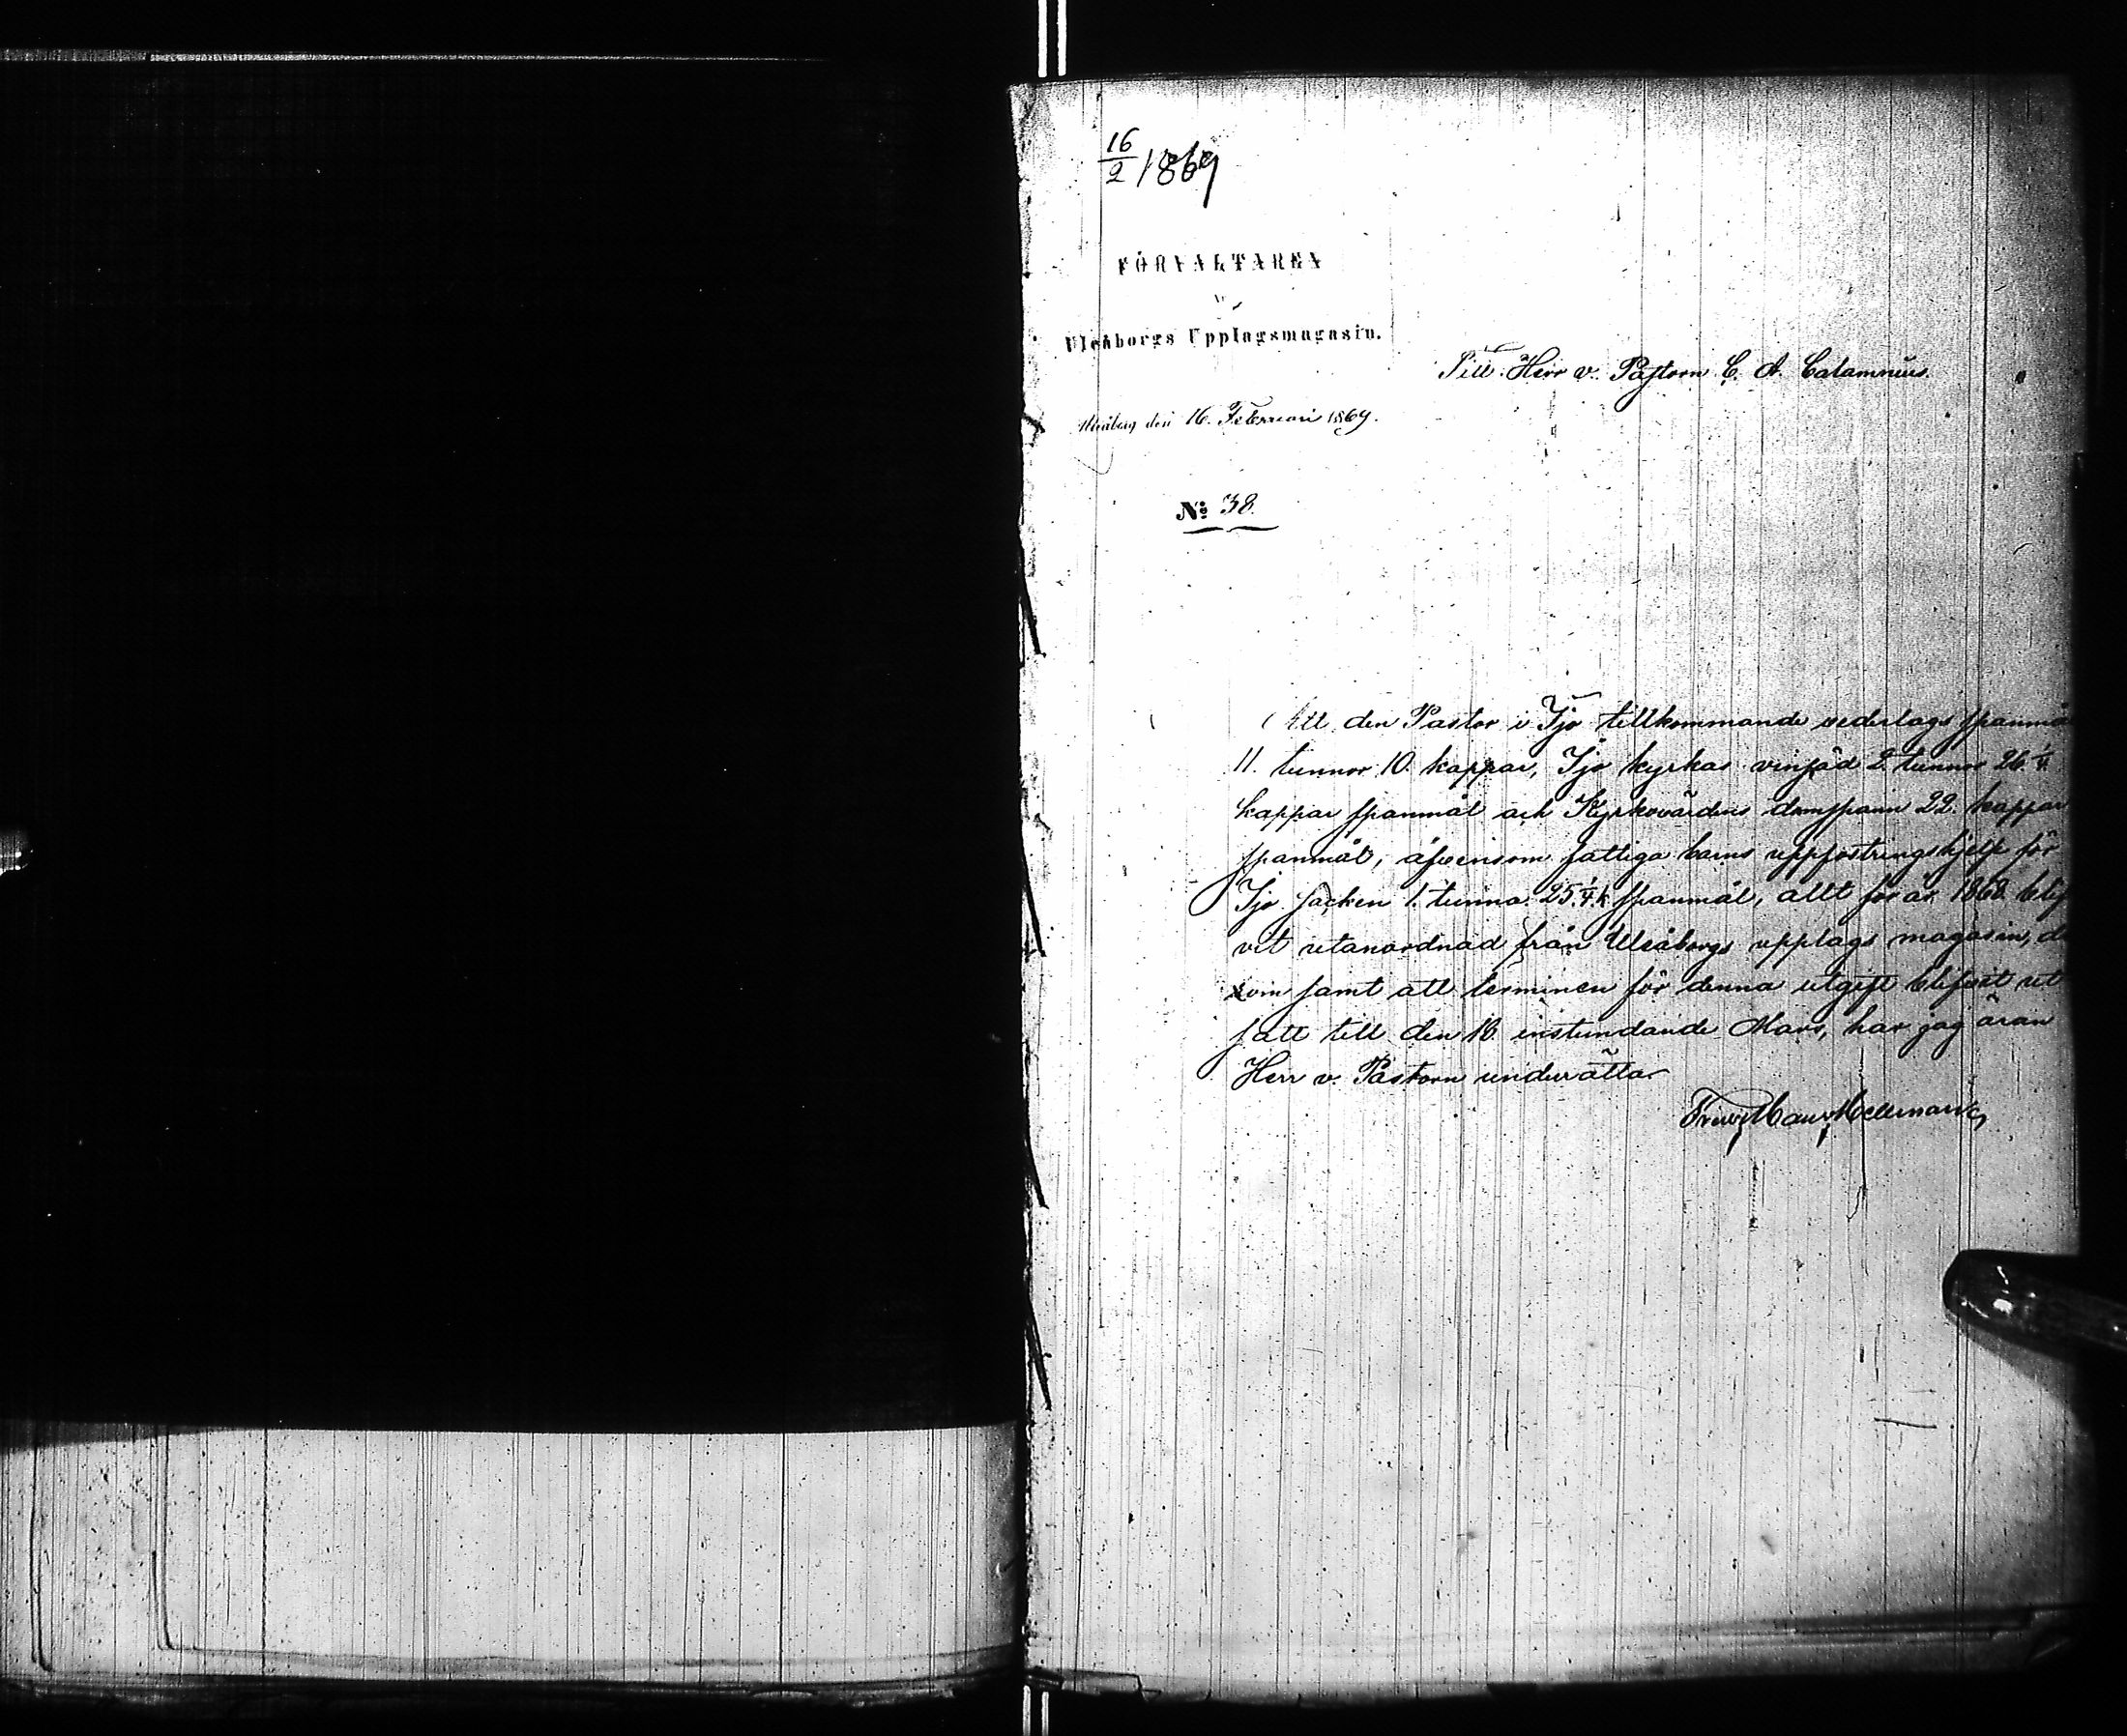 16/2 1869
FÖRVALTAREN
AF
Uleåborgs Upplagsmagasin.
Till Herr v. Pastorn C. A. Calamnius.
Uleåborg den 16. Februari 1869.
No 38.
Att den Pastor i Ijo tillkommande vederlags spanmå
11. tunnor 10. kappar, Ijo kyrkas vinsäd 2 tunnor 26 1/4
kappar spanmål och Kyrkovärdens domspann 22. kappar
spanmål, äfvensom fattiga barns uppfostringshjelp för
Ijo socken 1. tunna 25 1/4 k spanmål, allt för år 1868 blif
vit utanordnad från Uleåborgs upplags magasin, de
som samt att terminen för denna utgift blifvit ut
satt till den 18 instundande Mars, har jag äran
Herr v. Pastorn underätta